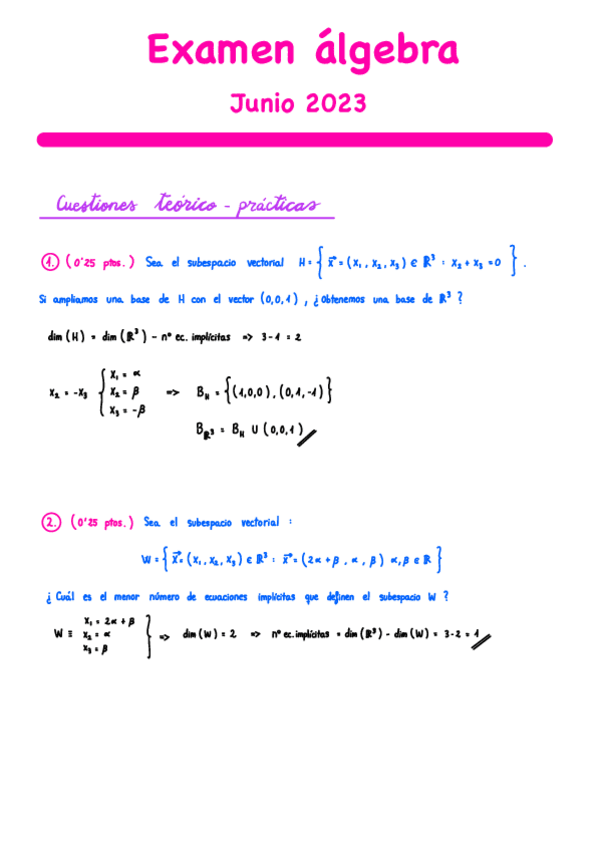 Examen álgebra
Junio 2023
Cuestiones teórico - prácticas
1. (0'25 ptos.) Sea el subespacio vectorial H = { x⃗ = (x₁, x₂, x₃) ∈ ℝ³ : x₂ + x₃ = 0 }.
Si ampliamos una base de H con el vector (0,0,1), ¿Obtenemos una base de ℝ³?
dim (H) = dim (ℝ³) - nº ec. implícitas => 3-1 = 2
x₂ = -x₃ { x₁ = α
x₂ = β
x₃ = -β
=> B_H = {(1,0,0), (0,1,-1)}
B_ℝ³ = B_H ∪ (0,0,1)
2. (0'25 ptos.) Sea el subespacio vectorial :
W = { x⃗ = (x₁, x₂, x₃) ∈ ℝ³ : x⃗ = (2α + β, α, β) α, β ∈ ℝ }
¿Cuál es el menor número de ecuaciones implícitas que definen el subespacio W?
W ≡ x₁ = 2α + β
x₂ = α
x₃ = β
} => dim (W) = 2 => nº ec. implícitas = dim (ℝ³) - dim (W) = 3-2 = 1